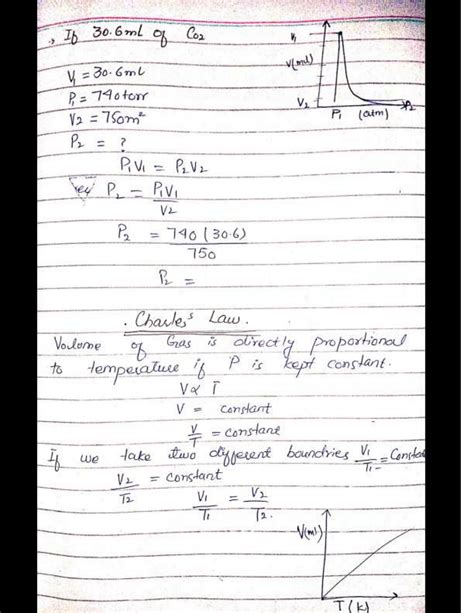 → If 30.6ml of Co2
V1
V(ml)
V2
P1 (atm) P2
V1 = 30.6ml
P1 = 740torr
V2 = 750m²
P2 = ?
P1V1 = P2V2
key P2 = P1V1
V2
P2 = 740 (30.6)
750
P2 =
. Charles's Law .
Volume of Gas is directly proportional
to temperature if P is kept constant.
V ∝ T
V = constant
V/T = constant
If we take two different boundries V1/T1 = Constant
V2/T2 = constant
V1/T1 = V2/T2.
V(ml)
T(K)